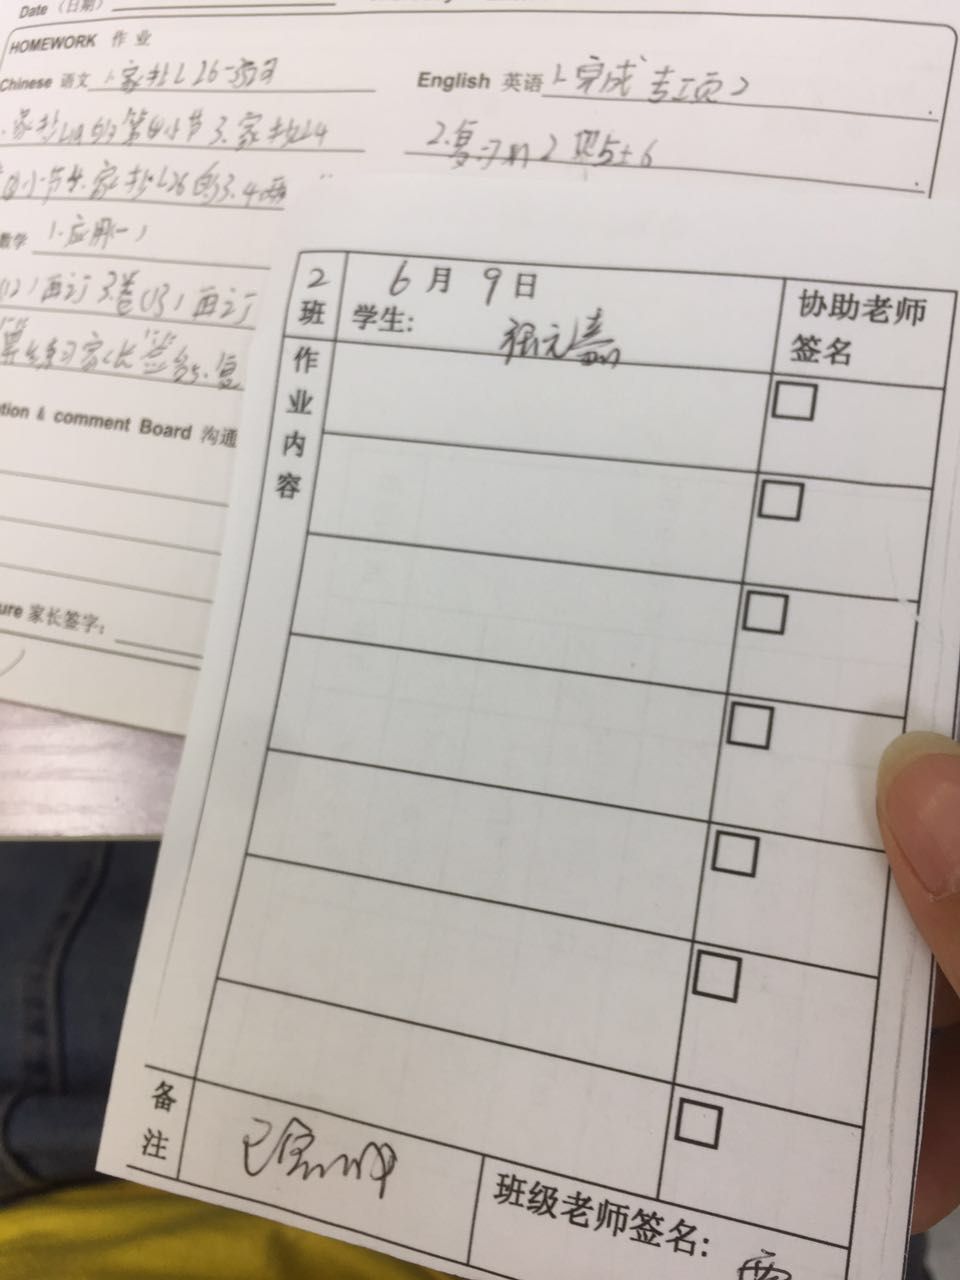 Date （日期）
HOMEWORK 作 业
Chinese 语文 1.家抄L26一
家抄 第4小节 3.家抄L4
小节4.家抄L26的3.4两
数学 1.应用(一)
(12)面订 3.卷(13)面订
算练习家长签名5.复
tion & comment Board 沟通
ure 家长签字：
English 英语 1.完成专项2
2.复习m2 5+6
2班
6月9日
学生:
协助老师签名
作业内容
备注
已完成
班级老师签名: